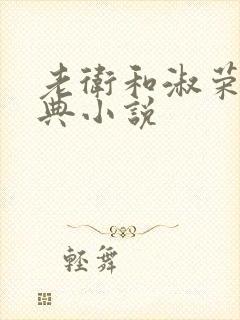 老衛和淑荣
典小説
輕舞